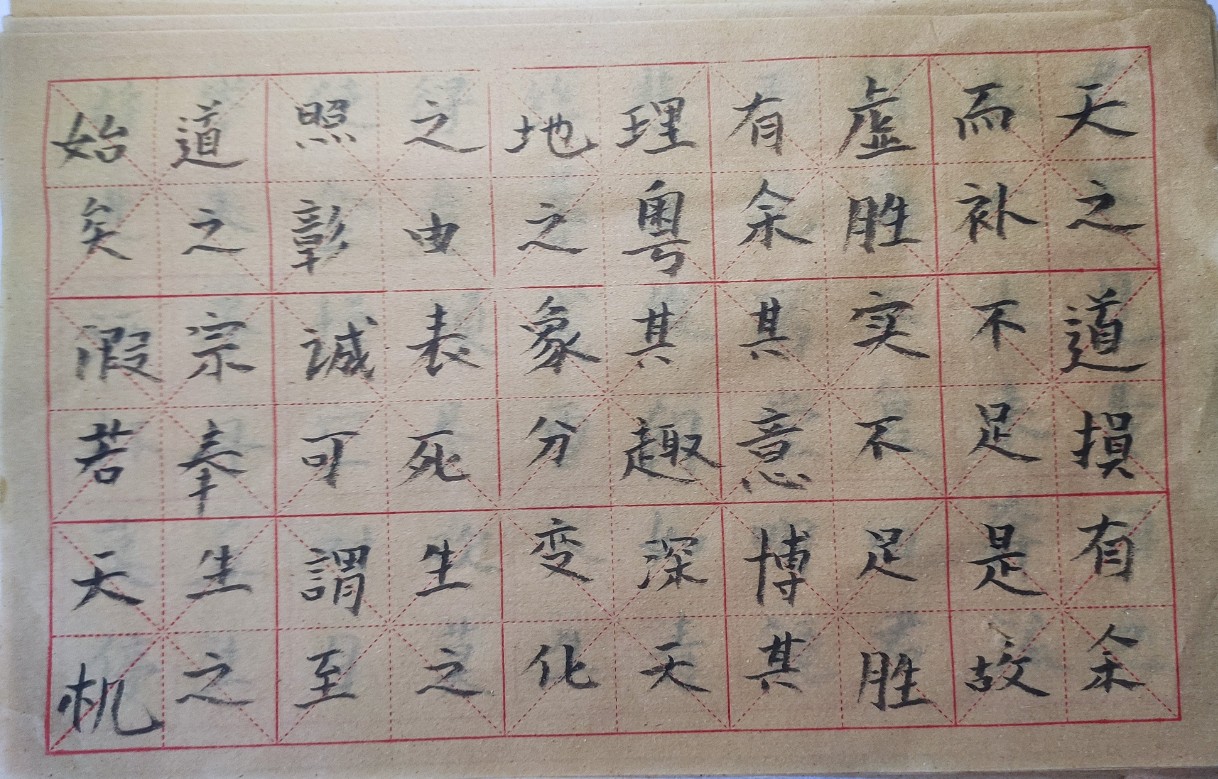 天之道損有余
而补不足是故
虚胜实不足胜
有余其意博其
理粤其趣深天
地之象分变化
之由表死生之
照彰誠可謂至
道之宗奉生之
始矣假若天机